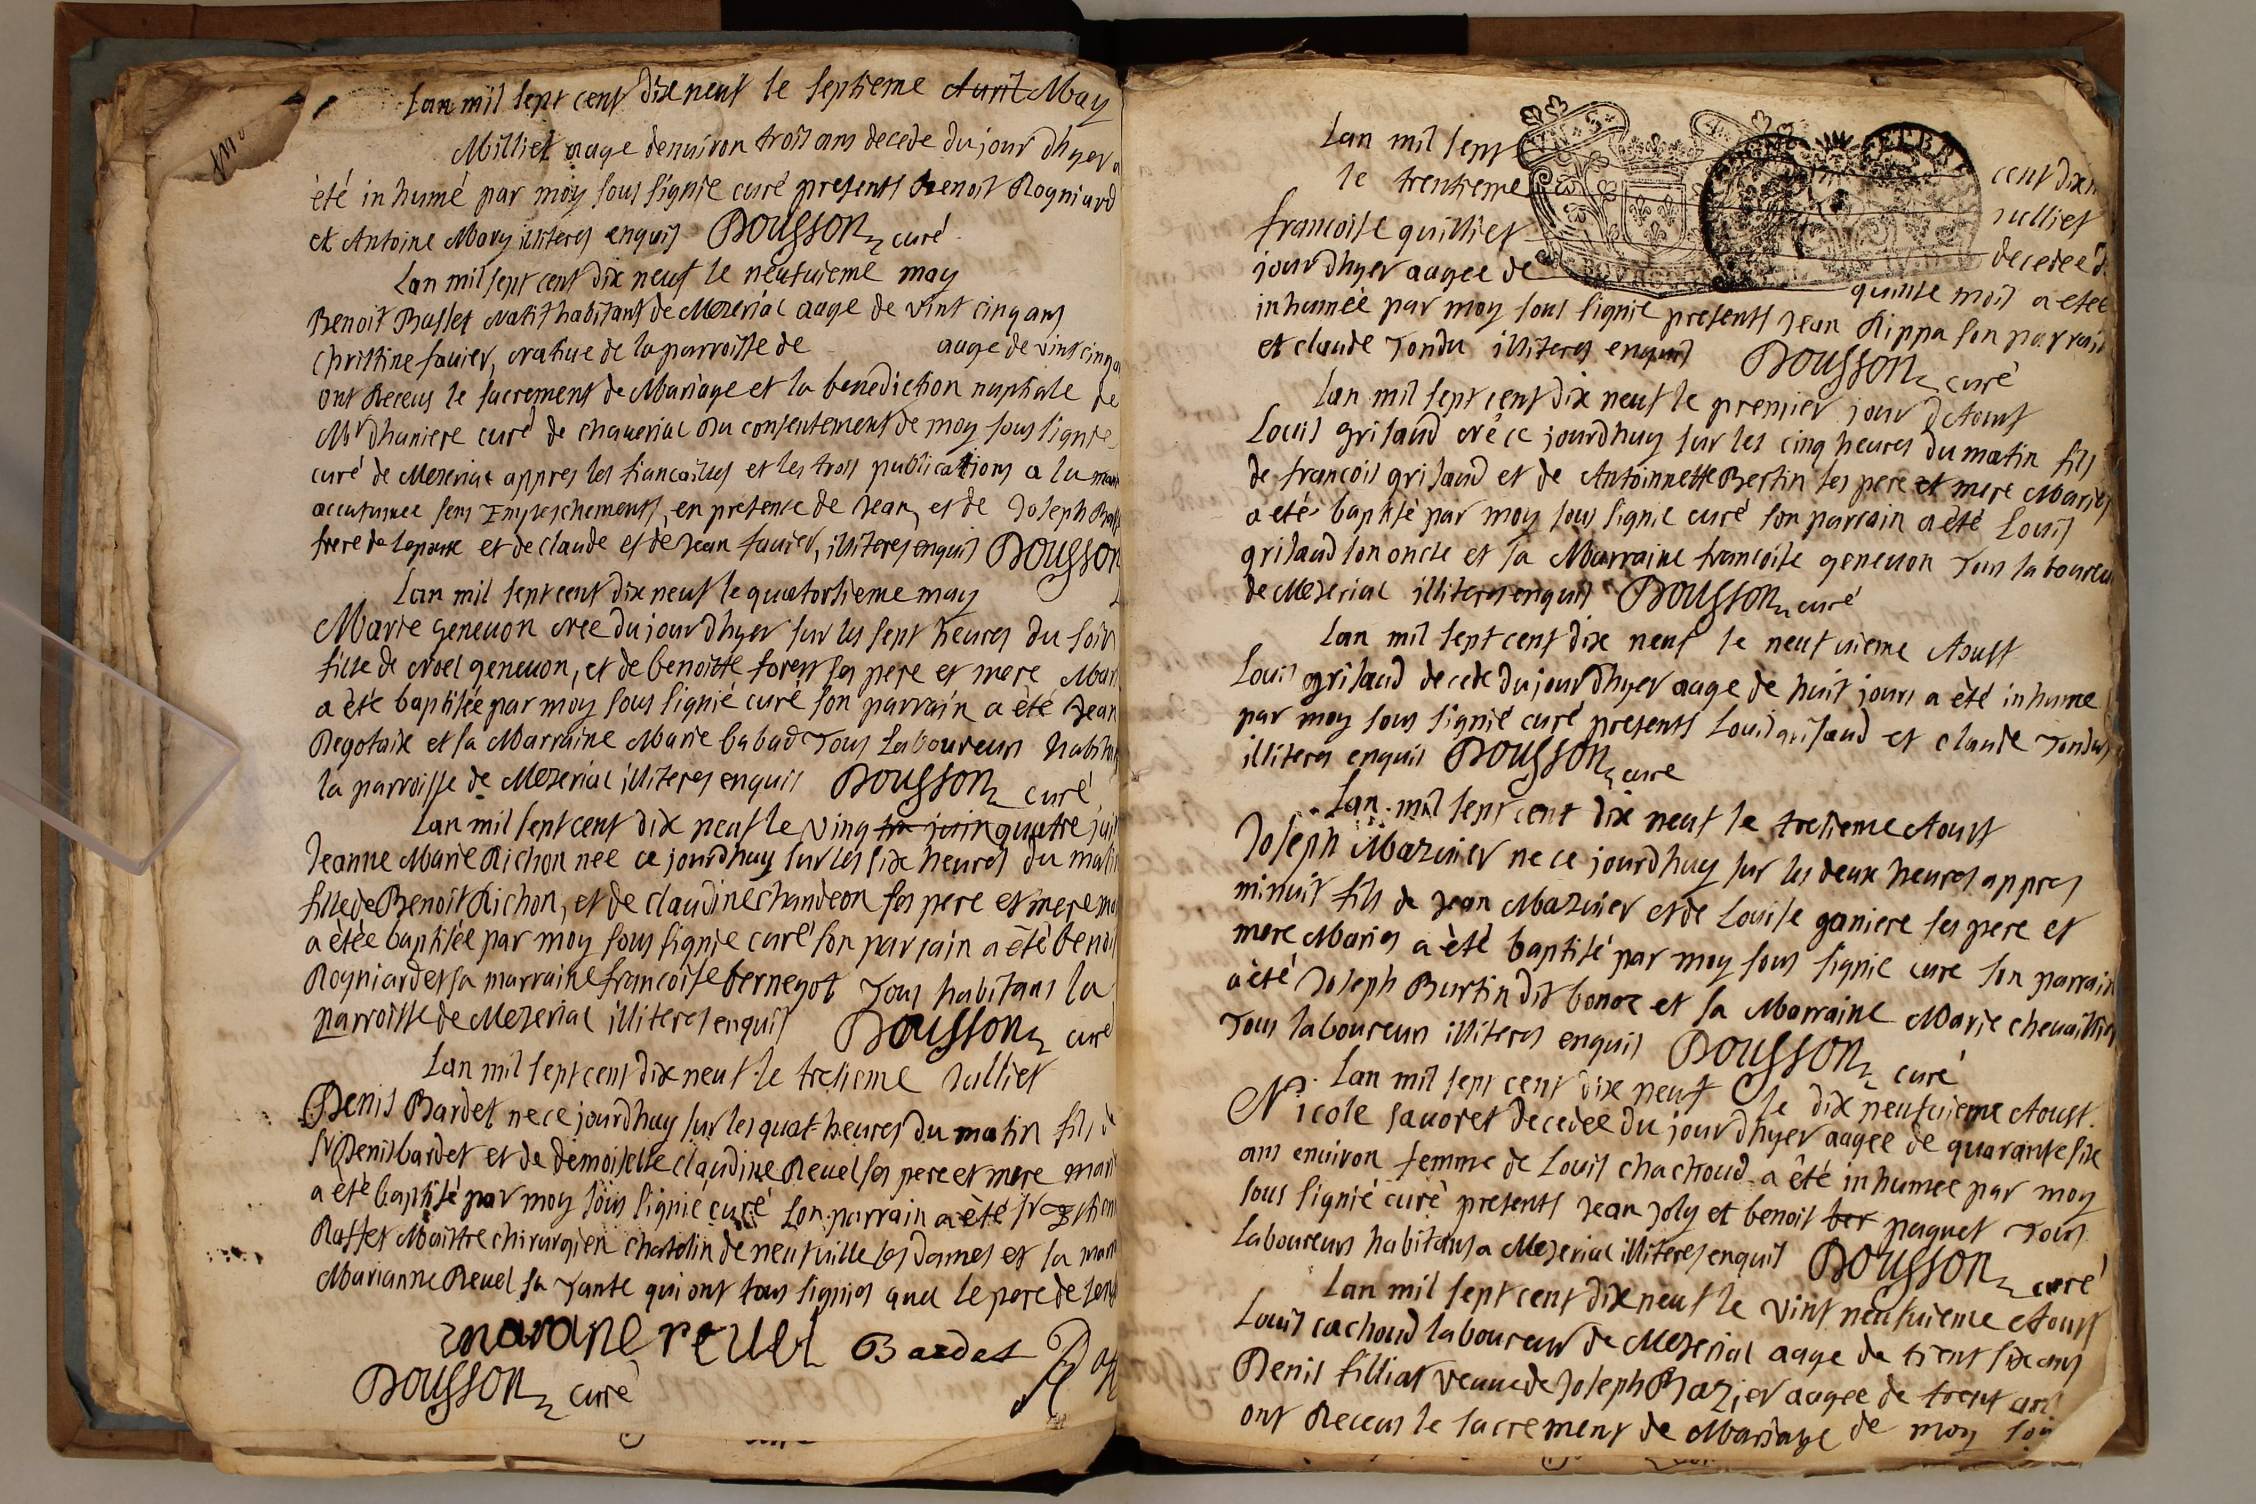 Lan mil sept cent dix neuf le septieme Avril May
Milliet aage denuiron trois ans decede du jour dhyer a
été inhumé par moy sous signie curé presents benoit Rogniard
et Antoine Mory illiteres enquis Dousson curé
Lan mil sept cent dix neuf le neufuieme may
Benoit Basset natif habitant de Mezeriac aage de vint cinq ans
Christine fauier, natiue de la parroisse de aage de vint cinq a
ont Receus le sacrement de Mariage et la benediction nuptiale de
Mr dhuniere curé de chaueriac Du consentement de moy sous signie
curé de Mezeriac appres les fiancailles et les trois publications a la man
accutumee sens Empeschements, en presence de Jean, et de Joseph Bass
frere de Lepoux et de claude et de Jean fauier, illiteres enquis Dousson
Lan mil sept cent dix neuf le quatorsieme may
Marie geneuon née du jour dhyer sur les sept heures du soir
fille de Noel geneuon, et de benoitte forest ses pere et mere Mar
a été baptisée par moy sous signié curé son parrain a été Jean
Regotaix et sa Marraine Marie babad Tous Laboureurs habitan
la parroisse de Mezeriac illiteres enquis Dousson curé
Lan mil sept cent dix neuf le ving juin quatre jui
Jeanne Marie Richon nee ce jourdhuy sur les six heures du matin
fille de Benoit Richon, et de claudine chandeon ses pere et mere ma
a étée baptisée par moy sous signie curé son parrain a été benoi
Rogniard et sa marraine francoise bernegot Tous habitans la
parroisse de Mezeriac illiteres enquis Dousson curé
Lan mil sept cent dix neuf le tresieme Julliet
Denis Bardet ne ce jourdhuy sur les quat heures du matin fils d
Sr Denis bardet et de demoiselle claudine Reuel ses pere et mere mari
a été baptisé par moy sous signie curé son parrain a été Sr Estien
Rasset Maittre chirurgien chatelin de neufuille les dames et sa marr
Marianne Reuel sa Tante qui ont tous signies auec le pere de len
marane reuel Bardet
Dousson curé
Lan mil sept cent dix n
le trentieme julliet
francoise quilliet decedee d
jour dhyer aagee de quinse mois a etée
inhumée par moy sous signie presents Jean Rippa son parrain
et claude Tondu illiteres enquis Dousson curé
Lan mil sept cent dix neuf le premier jour dAoust
Louis grisaud né ce jourdhuy sur les cinq heures du matin fils
de francois grisaud et de Antoinnette Bertin ses pere et mere Maries
a été baptisé par moy sous signie curé son parrain a été Louis
grisaud son oncle et sa Marraine francoise geneuon Tous laboureur
de Mezeriac illiteres enquis Dousson curé
Lan mil sept cent dix neuf le neufuieme Aoust
Louis grisaud decede du jour dhyer aage de huit jours a été inhume
par moy sous signié curé presents Louis grisaud et claude Tondu
illiteres enquis Dousson cure
Lan mil sept cent dix neuf le tresieme Aoust
Joseph Mazuier ne ce jourdhuy sur les deux heures appres
minuit fils de Jean Mazuier et de Louise ganiere ses pere et
mere Maries a été baptisé par moy sous signie cure son parrain
a été Joseph Burtin dit bonoz et sa Marraine Marie cheuallier
Tous laboureurs illiteres enquis Dousson curé
Lan mil sept cent dix neuf le dix neufuieme Aoust.
Nicole sauoret decedée du jour dhyer aagee de quarante six
ans enuiron femme de Louis chachoud a été inhumee par moy
sous signié curé presents Jean Joly et benoit ber paquet Tous
Laboureurs habitans a Mezeriac illiteres enquis Dousson curé
Lan mil sept cent dix neuf le vint neufuieme Aoust
Louis cachoud laboureur de Mezeriac aage de trent six ans
Denis filliat veuue de Joseph Bazier aagee de trent ans
ont Receus le sacrement de Mariage de moy sou